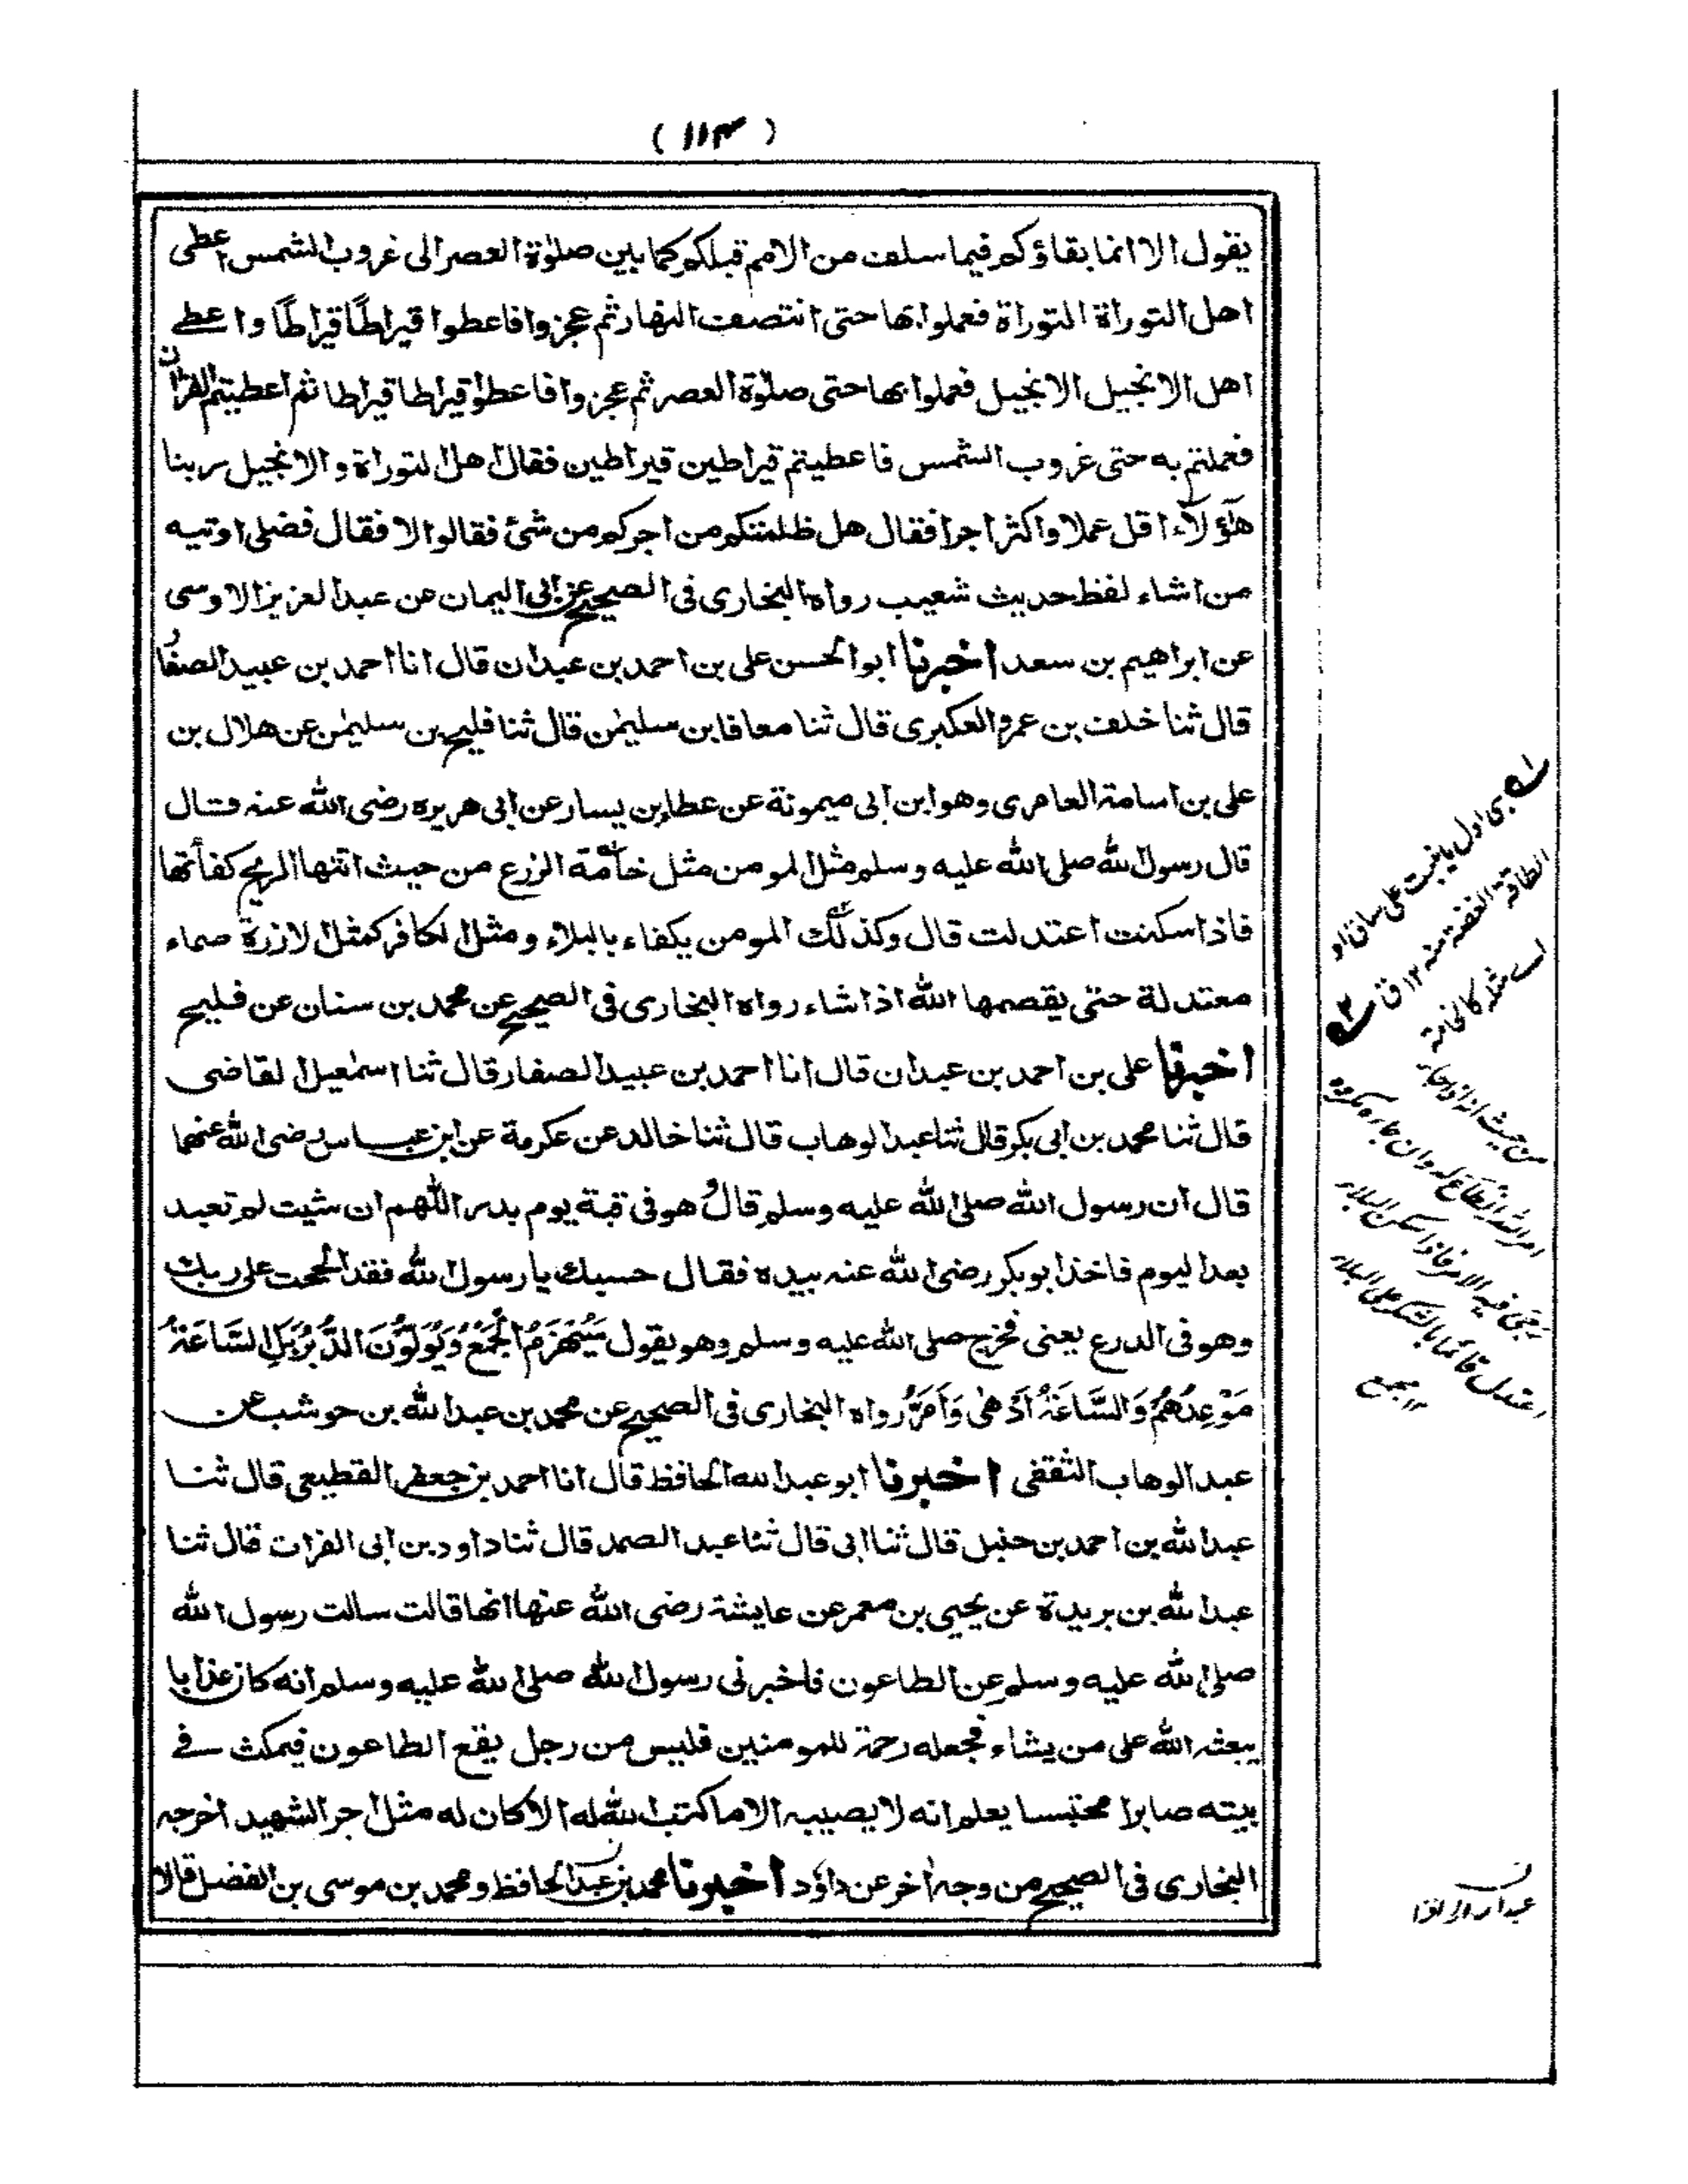 ( ۱۱۴ )
يقول الا انما بقاؤكم فيما سلف من الامم قبلكم كما بين صلوٰة العصر الى غروب الشمس اعطى
اهل التوراة التوراة فعملوا بها حتى انتصف النهار ثم عجزوا فاعطوا قيراطًا قيراطًا واعطے
اهل الانجيل الانجيل فعملوا بها حتى صلوٰة العصر ثم عجزوا فاعطوا قيراطا قيراطا ثم اعطيتم القرآن
فعملتم به حتى غروب الشمس فاعطيتم قيراطين قيراطين فقال اهل التوراة والانجيل ربنا
هٰؤلآء اقل عملا واكثر اجرا فقال هل ظلمتكم من اجركم من شئ فقالوا لا فقال فضلى اوتيه
من اشاء لفظ حديث شعيب رواه البخارى فى الصحيح عن ابى اليمان عن عبد العزيز الاوسى
عن ابراهيم بن سعد اخبرنا ابو الحسن على بن احمد بن عبدان قال انا احمد بن عبيد الصفار
قال ثنا خلف بن عمرو العكبرى قال ثنا معافا بن سليمٰن قال ثنا فليح بن سليمٰن عن هلال بن
على بن اسامة العامرى وهو ابن ابى ميمونة عن عطا بن يسار عن ابى هريره رضى الله عنه قال
قال رسول الله صلى الله عليه وسلم مثل المومن مثل خامّة الزرع من حيث اتتها الريح كفأتها
فاذا سكنت اعتدلت قال وكذلك المومن يكفاء بالبلاء ومثل الكافر كمثل الارزة صماء
معتدلة حتى يقصمها الله اذا شاء رواه البخارى فى الصحيح عن محمد بن سنان عن فليح
اخبرنا على بن احمد بن عبدان قال انا احمد بن عبيد الصفار قال ثنا اسمٰعيل القاضى
قال ثنا محمد بن ابى بكر قال ثنا عبد الوهاب قال ثنا خالد عن عكرمة عن ابن عباس رضى الله عنهما
قال ان رسول الله صلى الله عليه وسلم قال وهو فى قبة يوم بدر اللّٰهم ان شيت لم تعبد
بعد اليوم فاخذ ابو بكر رضى الله عنه بيده فقال حسبك يا رسول الله فقد الححت على ربك
وهو فى الدرع يعنى فخرج صلى الله عليه وسلم وهو يقول سَيُهْزَمُ الْجَمْعُ وَيُوَلُّوْنَ الدُّبُرَ بَلِ السَّاعَةُ
مَوْعِدُهُمْ وَالسَّاعَةُ اَدْهٰى وَاَمَرُّ رواه البخارى فى الصحيح عن محمد بن عبد الله بن حوشب عن
عبد الوهاب الثقفى اخبرنا ابو عبد الله الحافظ قال انا احمد بن جعفر القطيعى قال ثنا
عبد الله بن احمد بن حنبل قال ثنا ابى قال ثنا عبد الصمد قال ثنا داود بن ابى الفرات قال ثنا
عبد الله بن بريدة عن يحيى بن معمر عن عايشة رضى الله عنها انها قالت سالت رسول الله
صلى الله عليه وسلم عن الطاعون فاخبرنى رسول الله صلى الله عليه وسلم انه كان عذابا
يبعثه الله على من يشاء فجعله رحمة للمومنين فليس من رجل يقع الطاعون فيمكث فے
بيته صابرا محتبسا يعلم انه لا يصيبه الا ما كتب الله له الا كان له مثل اجر الشهيد اخرجه
البخارى فى الصحيح من وجه اٰخر عن داؤد اخبرنا محمد بن عبد الحافظ ومحمد بن موسى بن الفضل قالا
ى اول ما ينبت على ساق او
الطاقة الغضة منه ۱۲ ق
من حيث
امر الله انطاع له وان
اعتدل قائما بالشكر على البلاء
۱۲ مجمع